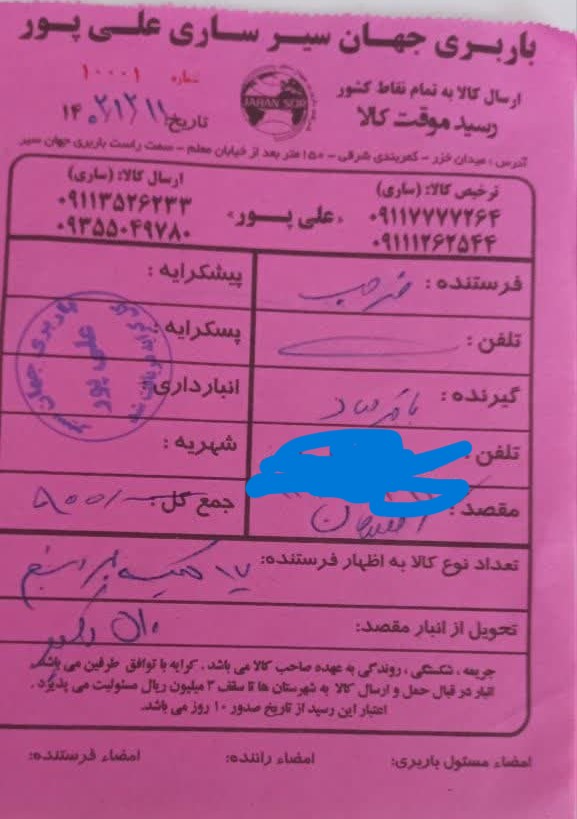 باربری جهان سیر ساری علی پور
ارسال کالا به تمام نقاط کشور
رسید موقت کالا
JAHAN SEIR
شماره ۱۰۰۰۱
تاریخ:
آدرس: میدان خزر - کمربندی شرقی - ۱۵۰ متر بعد از خیابان معلم - سمت راست باربری جهان سیر
ترخیص کالا: (ساری)
۰۹۱۱۷۷۷۷۲۶۴
۰۹۱۱۱۲۶۲۵۴۴
«علی پور»
ارسال کالا: (ساری)
۰۹۱۱۳۵۲۶۲۳۳
۰۹۳۵۵۰۴۹۷۸۰
فرستنده:
پیشکرایه:
تلفن:
پسکرایه:
گیرنده:
انبارداری:
تلفن:
شهریه:
مقصد:
جمع کل:
باربری جهان سیر
علی پور
تعداد نوع کالا به اظهار فرستنده:
تحویل از انبار مقصد:
جریمه، شکستگی، روندگی به عهده صاحب کالا می باشد. کرایه با توافق طرفین می باشد.
انبار در قبال حمل و ارسال کالا به شهرستان ها تا سقف ۳ میلیون ریال مسئولیت می پذیرد.
اعتبار این رسید از تاریخ صدور ۱۰ روز می باشد.
امضاء مسئول باربری:
امضاء راننده:
امضاء فرستنده: